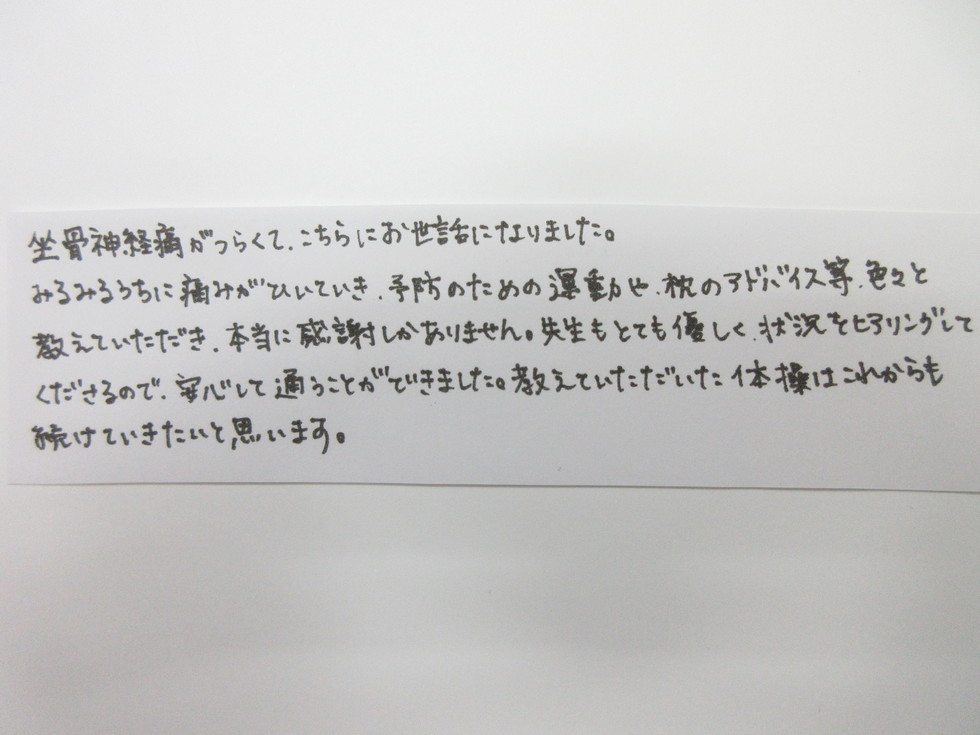 坐骨神経痛がつらくて、こちらにお世話になりました。
みるみるうちに痛みがひいていき、予防のための運動や、枕のアドバイス等、色々と
教えていただき、本当に感謝しかありません。先生もとても優しく、状況をヒアリングして
くださるので、安心して通うことができました。教えていただいた体操はこれからも
続けていきたいと思います。